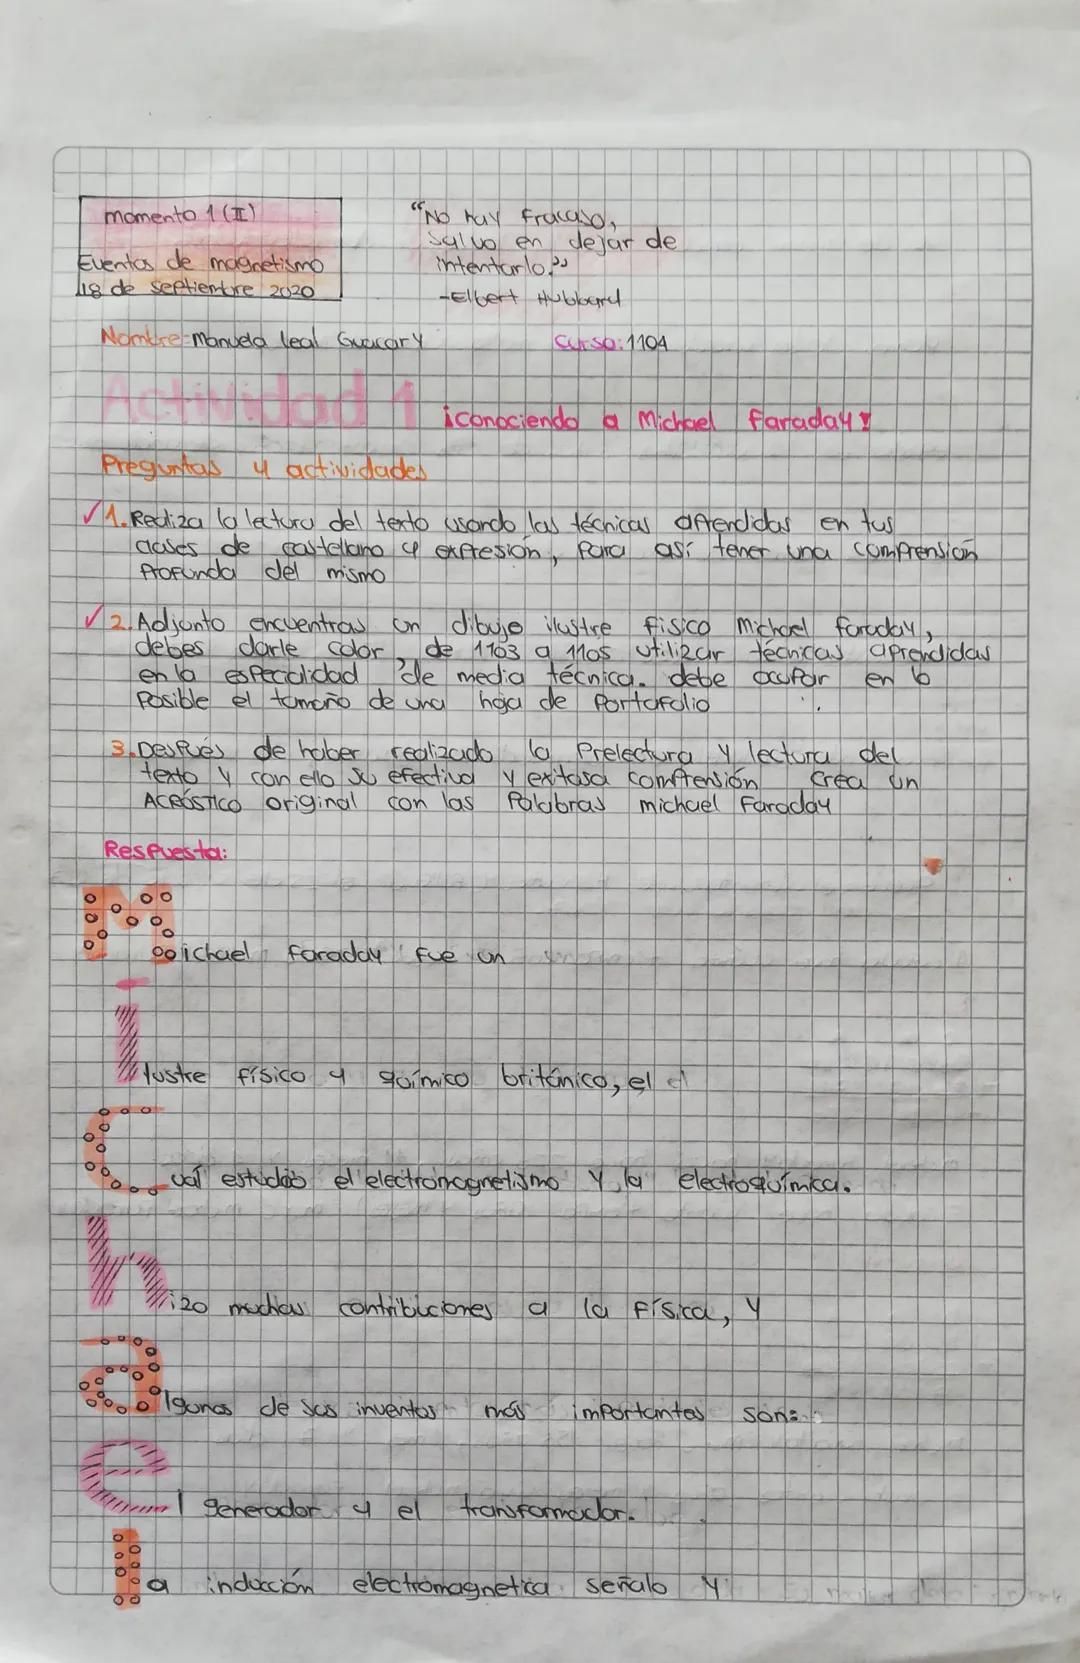 momento 1 (II)
Eventos de magnetismo
18 de septiembre 2020
"No hay fracaso,
salvo en dejar de
intentarlo."
-Elbert Hubbard
Nombre: Manuela leal Guacary Curso: 1104
Actividad 1 ¡conociendo a Michael faraday!
Preguntas y actividades
✓1. Realiza la lectura del texto usando las técnicas aprendidas en tus
clases de castellano y expresión, para así tener una comprensión
profunda del mismo
✓2. Adjunto encuentras un dibujo ilustre físico michael faraday,
debes darle color, de 1103 a 1105 utilizar técnicas aprendidas
en la especialidad de media técnica. debe ocupar en lo
posible el tamaño de una hoja de portafolio
3. Después de haber realizado la prelectura y lectura del
texto y con ello su efectiva y exitosa comprensión crea un
ACRÓSTICO original con las palabras michael Faraday
Respuesta:
Michael Faraday fue un
ilustre físico y químico británico, el
cual estudió el electromagnetismo y la electroquímica.
hizo muchas contribuciones a la física, y
algunos de sus inventos más importantes son:
el generador y el transformador.
la inducción electromagnetica señalo y